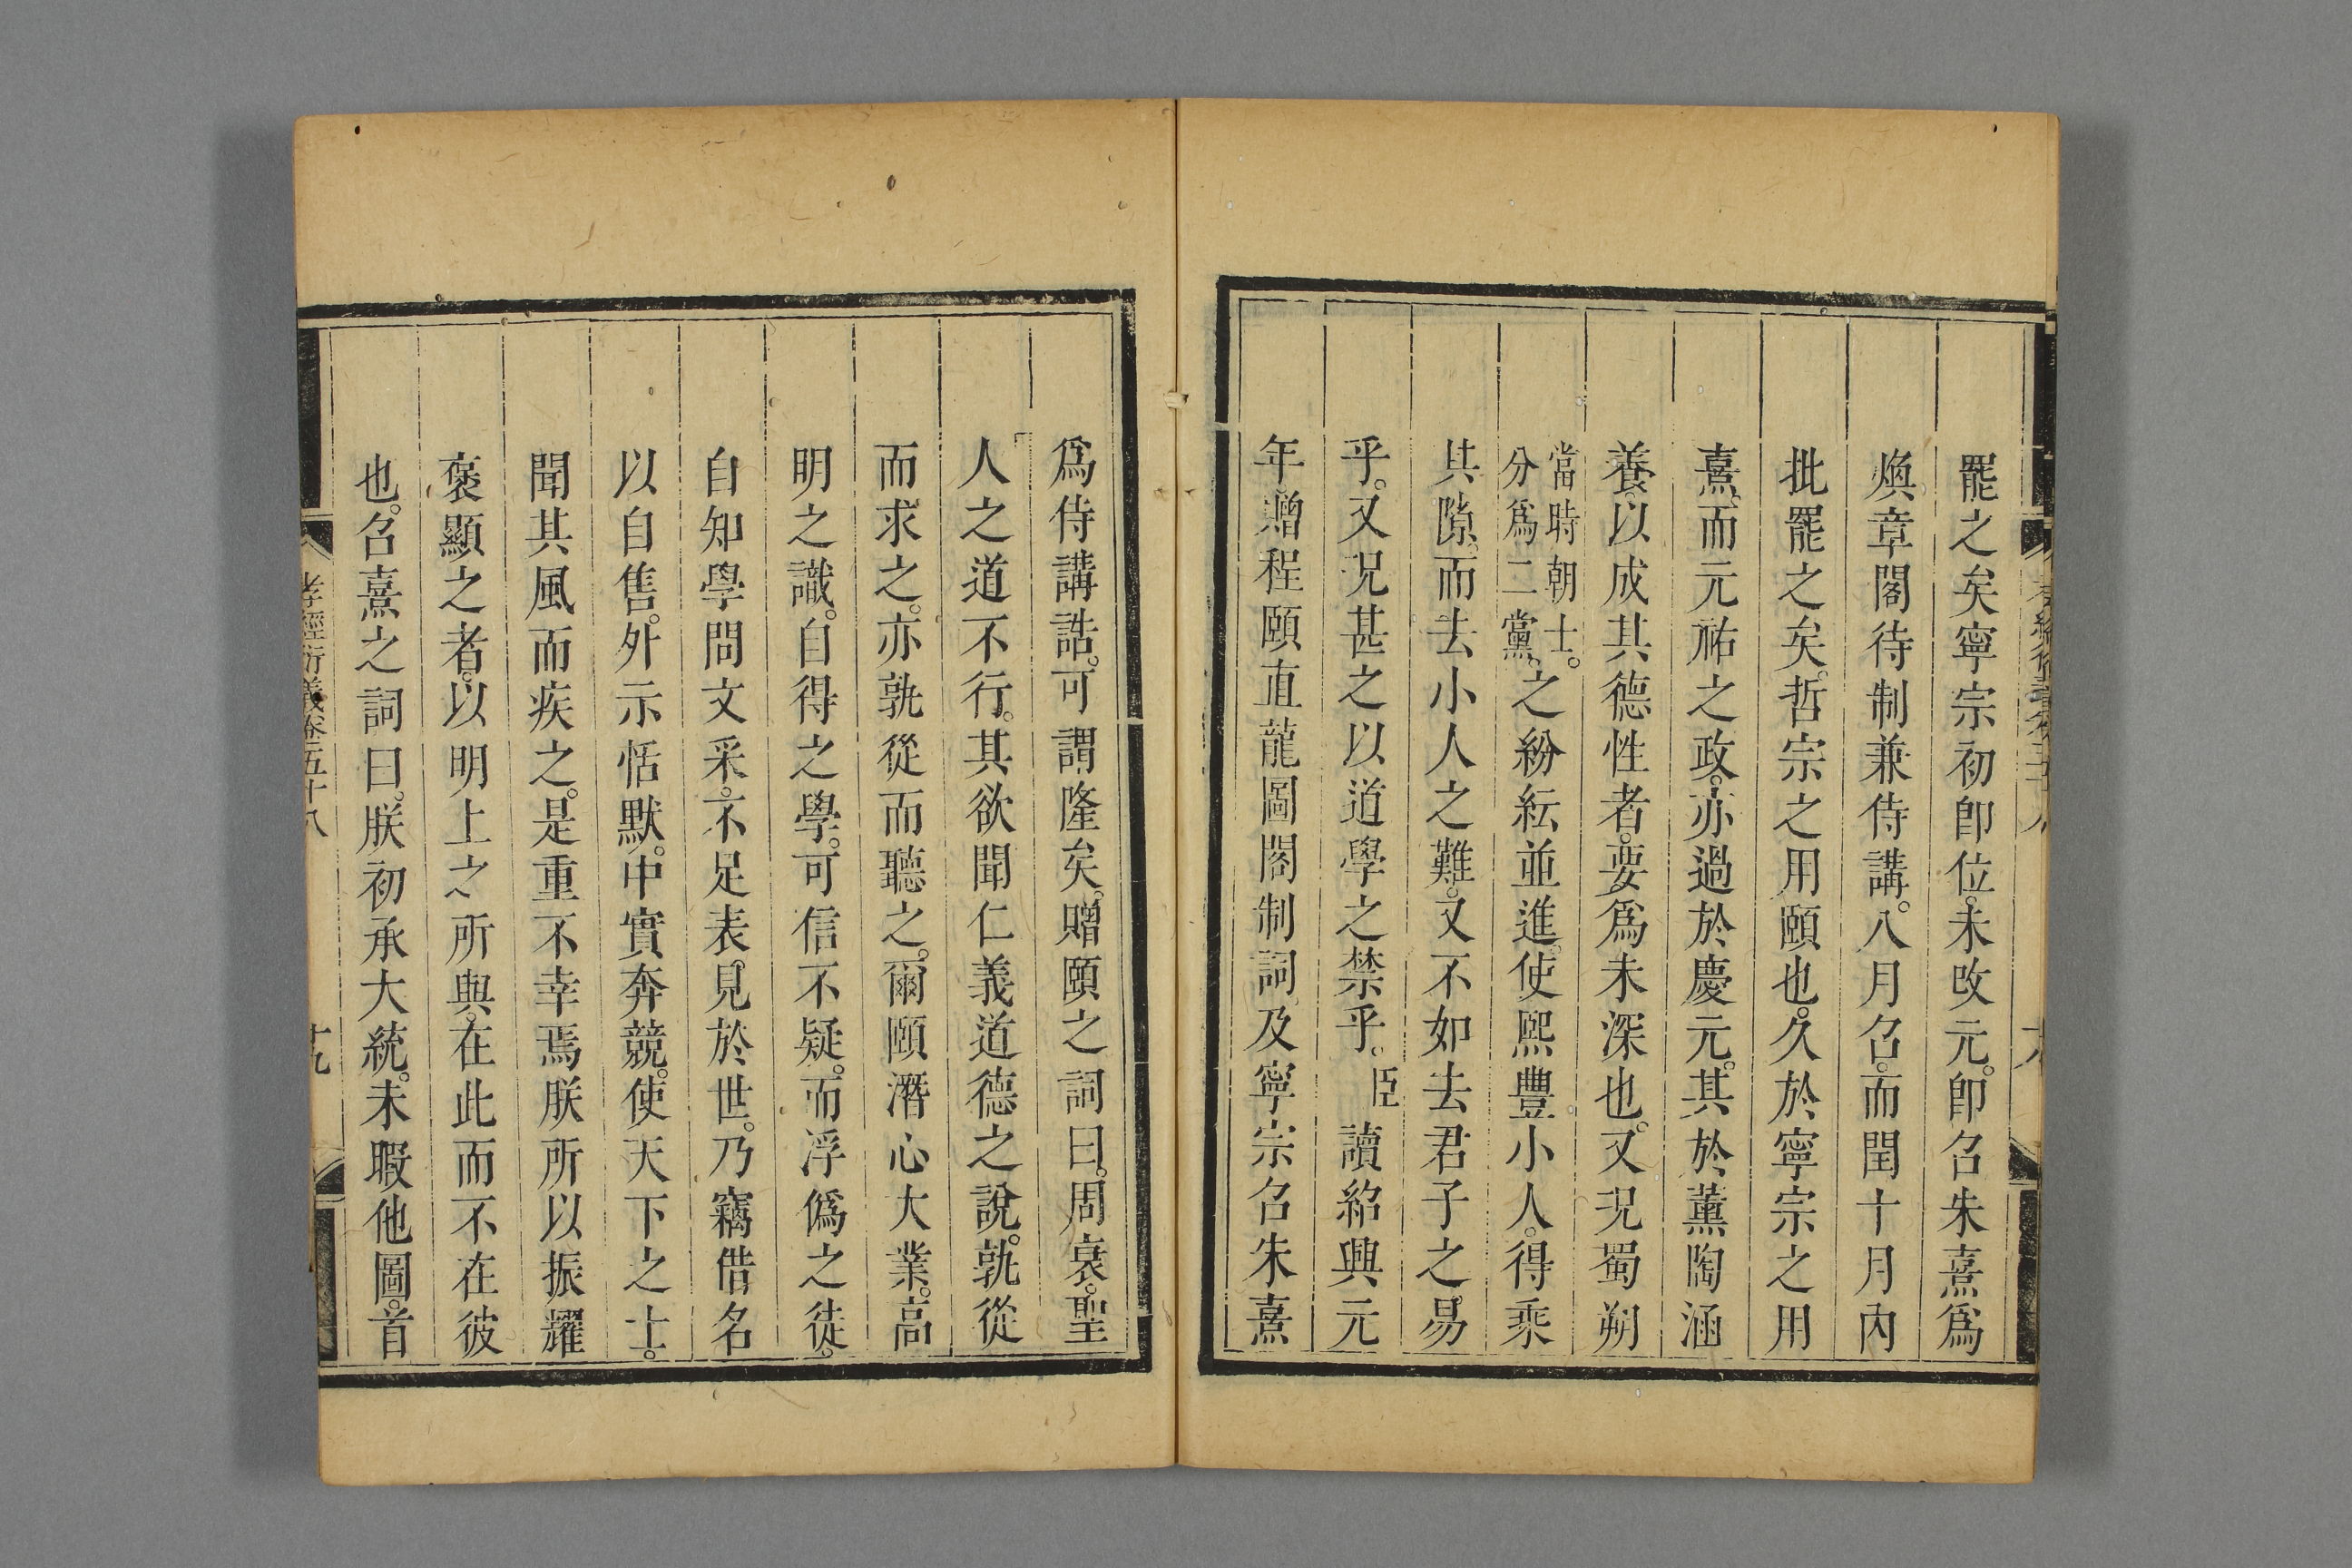 罷之矣寧宗初卽位。未改元。卽召朱熹爲
煥章閣待制兼侍講。八月召。而閏十月內
批罷之矣。哲宗之用頤也。久於寧宗之用
熹。而元祐之政。亦過於慶元。其於薰陶涵
養。以成其德性者。要爲未深也。又況蜀朔
當時朝士。分爲二黨。之紛紜並進。使熙豐小人。得乘
其隙。而去小人之難。又不如去君子之易
乎。又況甚之以道學之禁乎。臣讀紹興元
年贈程頤直龍圖閣制詞及寧宗召朱熹
爲侍講誥。可謂隆矣。贈頤之詞曰。周衰。聖
人之道不行。其欲聞仁義道德之說。孰從
而求之。亦孰從而聽之。爾頤潛心大業。高
明之識。自得之學。可信不疑。而浮僞之徒。
自知學問文采。不足表見於世。乃竊借名
以自售。外示恬默。中實奔競。使天下之士。
聞其風而疾之。是重不幸焉朕所以振耀
褒顯之者。以明上之所與。在此而不在彼
也。召熹之詞曰。朕初承大統。未暇他圖。首
孝經衍義卷五十八
十九